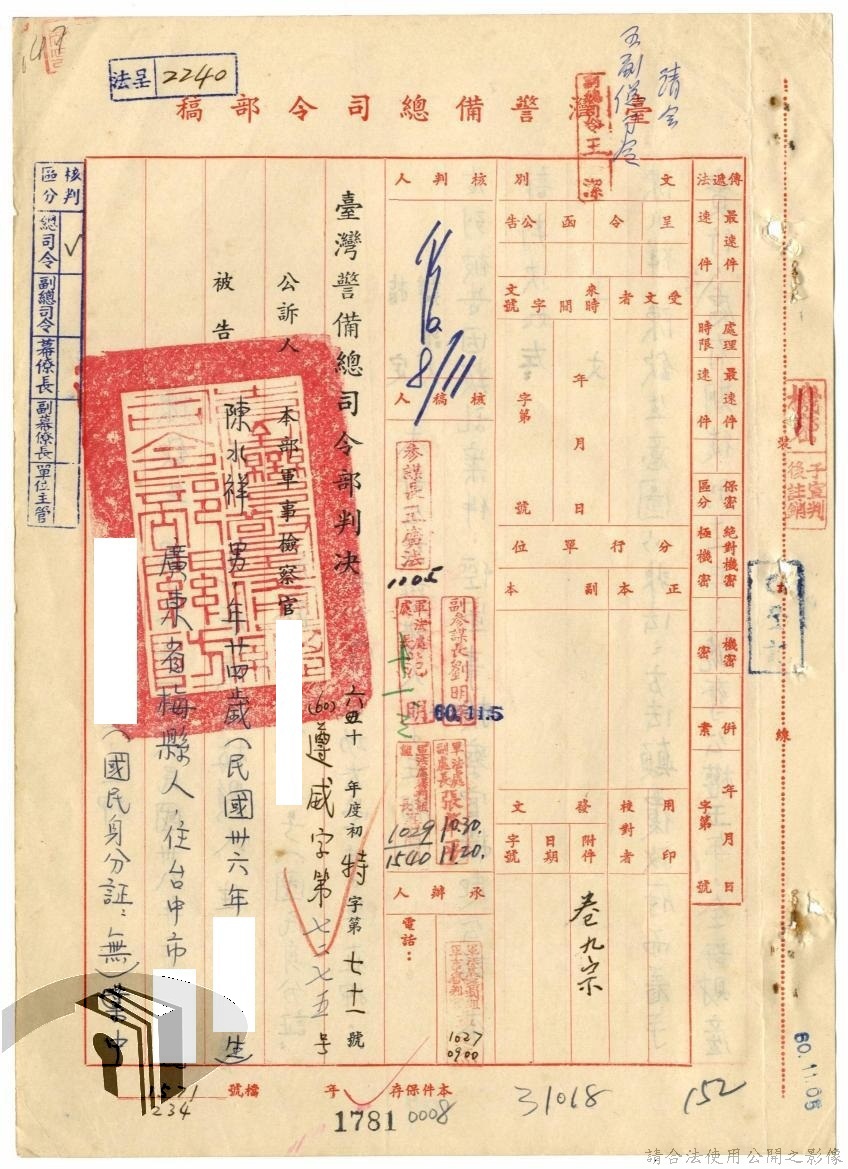 法呈 2240
請会
五副總司令
副總司令王潔
臺灣警備總司令部稿
核判區分
總司令 ✓
副總司令
幕僚長
副幕僚長
單位主管
傳遞法 最速件 速件
處理時限 最速件 速件
保密區分 絕對機密 極機密 機密 密
併案 年 月 日 字第 號
文別 呈 令 函 公告
受文者
來文時間字號 年 月 日 字第 號
分行單位 正本 副本
發文 用印 校對者 附件 日期 字號
卷九宗
核判人
8/11
核稿人
參謀長王廣法
1105
副參謀長劉明
軍法處處長 明
60.11.5
軍法處副處長張
10.30.
11.20.
1029
1540
承辦人
電話：
1027
0900
臺灣警備總司令部判決
六十年度初特字第七十一號
(60)遵威字第七二七五号
公訴人 本部軍事檢察官
被告 陳水祥 男 年廿四歲（民國卅六年 生）
廣東省梅縣人，住台中市
（國民身分証：無）業中
裝
訂
線
予宣判後註銷
60.11.05
本件保存 年
檔號 1571
234
1781 0008
31018
152
請合法使用公開之影像